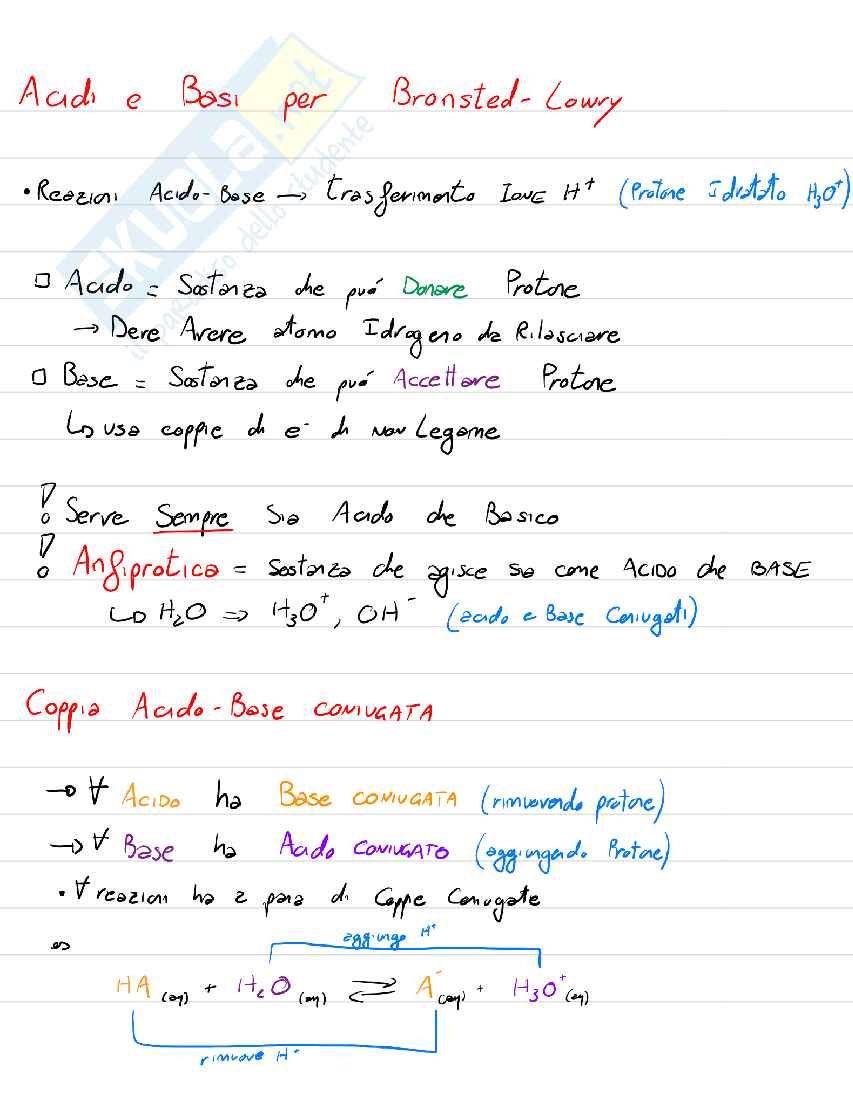 Acidi e Basi per Bronsted-Lowry
• Reazioni Acido-Base → trasferimento IONE H⁺ (Protone Idratato H₃O⁺)
SKUOLA.net
il paradiso dello studente
□ Acido = Sostanza che può Donare Protone
→ Deve Avere atomo Idrogeno da Rilasciare
□ Base = Sostanza che può Accettare Protone
↳ usa coppie di e⁻ di non Legame
! Serve Sempre Sia Acido che Basico
! Anfiprotica = Sostanza che agisce sia come ACIDO che BASE
↳ H₂O ⇒ H₃O⁺, OH⁻ (acido e Base Coniugati)
Coppia Acido-Base CONIUGATA
→ ∀ ACIDO ha Base CONIUGATA (rimuovendo protone)
→ ∀ Base ha Acido CONIUGATO (aggiungendo Protone)
• ∀ reazioni ha 2 paia di Coppe Coniugate
es
aggiungo H⁺
HA (aq) + H₂O (aq) ⇄ A⁻ (aq) + H₃O⁺ (aq)
rimuove H⁺